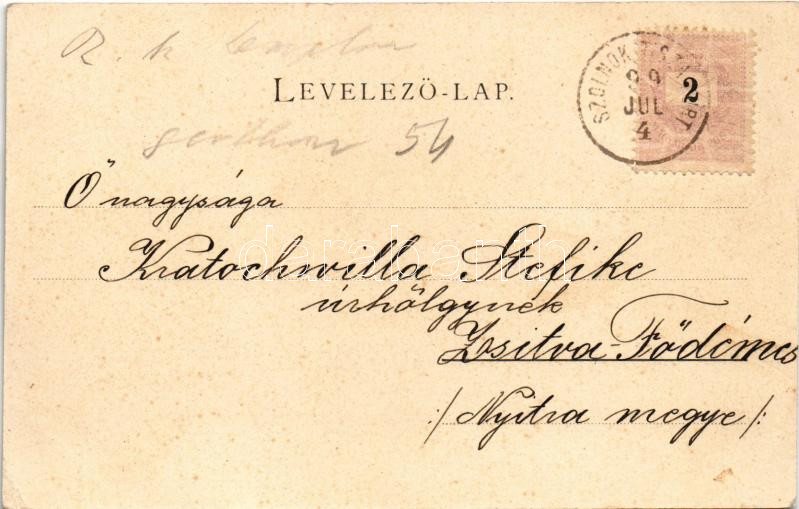 R. k. templom
LEVELEZŐ-LAP.
SZOLNOK
2
99
JUL
4
54
Ő nagysága
Kratochwilla Stefike
úrhölgynek
Zsitva-Födémes
/: Nyitra megye :/
darabanth